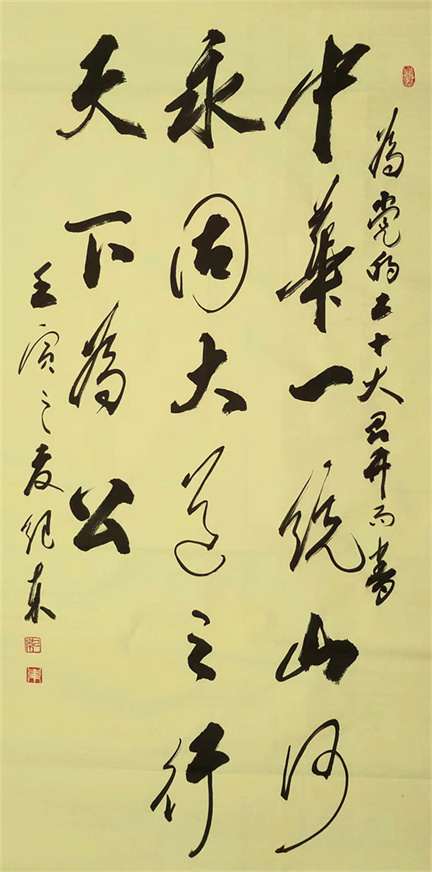 中華一統山河
永固大道之行
天下為公
為党的二十大召开而書
壬寅之夏纪东